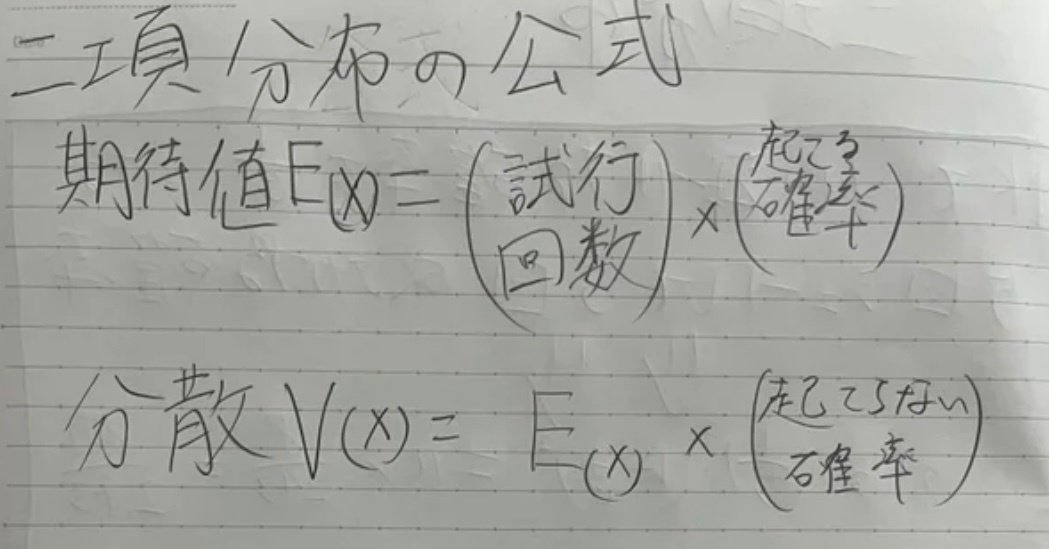 二項分布の公式
期待値E(X)=(試行回数)×(起こる確率)
分散V(X)=E(X)×(起こらない確率)